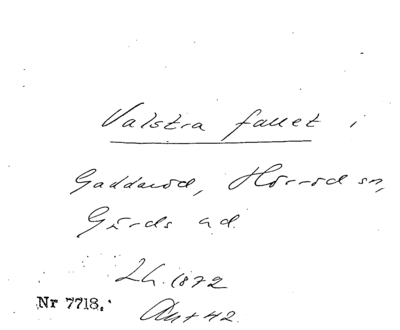 Valstra fallet i
Gaddaröd, Hörröd sn,
Gärds hd.
1872
Nr 7718.